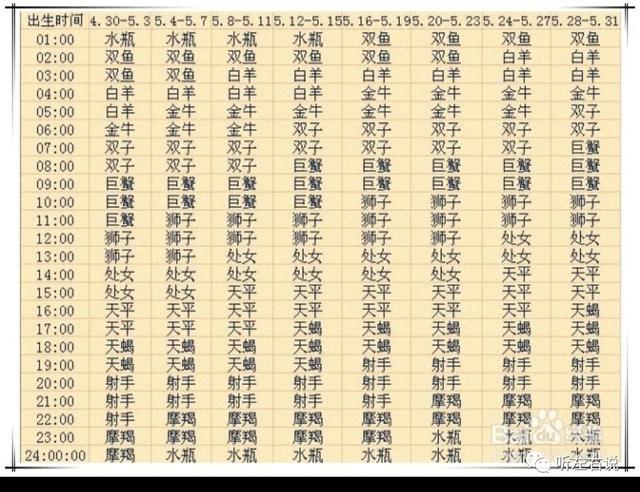 出生时间 4.30-5.3 5.4-5.7 5.8-5.11 5.12-5.15 5.16-5.19 5.20-5.23 5.24-5.27 5.28-5.31
01:00 水瓶 水瓶 水瓶 水瓶 双鱼 双鱼 双鱼 双鱼
02:00 双鱼 双鱼 双鱼 双鱼 双鱼 双鱼 白羊 白羊
03:00 双鱼 双鱼 白羊 白羊 白羊 白羊 白羊 白羊
04:00 白羊 白羊 白羊 白羊 金牛 金牛 金牛 金牛
05:00 白羊 金牛 金牛 金牛 金牛 金牛 金牛 双子
06:00 金牛 金牛 金牛 双子 双子 双子 双子 双子
07:00 双子 双子 双子 双子 双子 双子 双子 巨蟹
08:00 双子 双子 双子 巨蟹 巨蟹 巨蟹 巨蟹 巨蟹
09:00 巨蟹 巨蟹 巨蟹 巨蟹 巨蟹 巨蟹 巨蟹 巨蟹
10:00 巨蟹 巨蟹 巨蟹 巨蟹 狮子 狮子 狮子 狮子
11:00 巨蟹 狮子 狮子 狮子 狮子 狮子 狮子 狮子
12:00 狮子 狮子 狮子 狮子 狮子 狮子 处女 处女
13:00 狮子 狮子 处女 处女 处女 处女 处女 处女
14:00 处女 处女 处女 处女 处女 处女 天平 天平
15:00 处女 处女 天平 天平 天平 天平 天平 天平
16:00 天平 天平 天平 天平 天平 天平 天平 天蝎
17:00 天平 天平 天平 天蝎 天蝎 天蝎 天蝎 天蝎
18:00 天蝎 天蝎 天蝎 天蝎 天蝎 天蝎 天蝎 天蝎
19:00 天蝎 天蝎 天蝎 天蝎 射手 射手 射手 射手
20:00 射手 射手 射手 射手 射手 射手 射手 射手
21:00 射手 射手 射手 射手 射手 摩羯 摩羯 摩羯
22:00 射手 摩羯 摩羯 摩羯 摩羯 摩羯 摩羯 摩羯
23:00 摩羯 摩羯 摩羯 摩羯 摩羯 水瓶 水瓶 水瓶
24:00:00 摩羯 水瓶 水瓶 水瓶 水瓶 水瓶 水瓶 水瓶
Baidu经验
听左右说